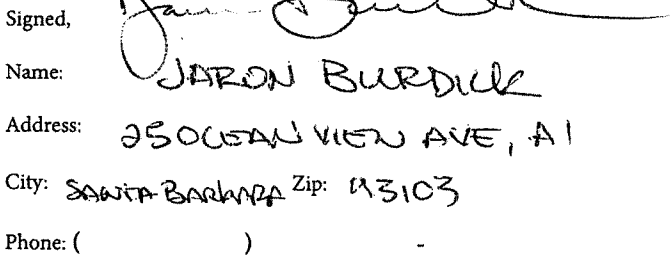 Signed,
Name: JARON BURDICK
Address: 25 OCEAN VIEW AVE, A1
City: SANTA BARBARA Zip: 93103
Phone: ( ) -